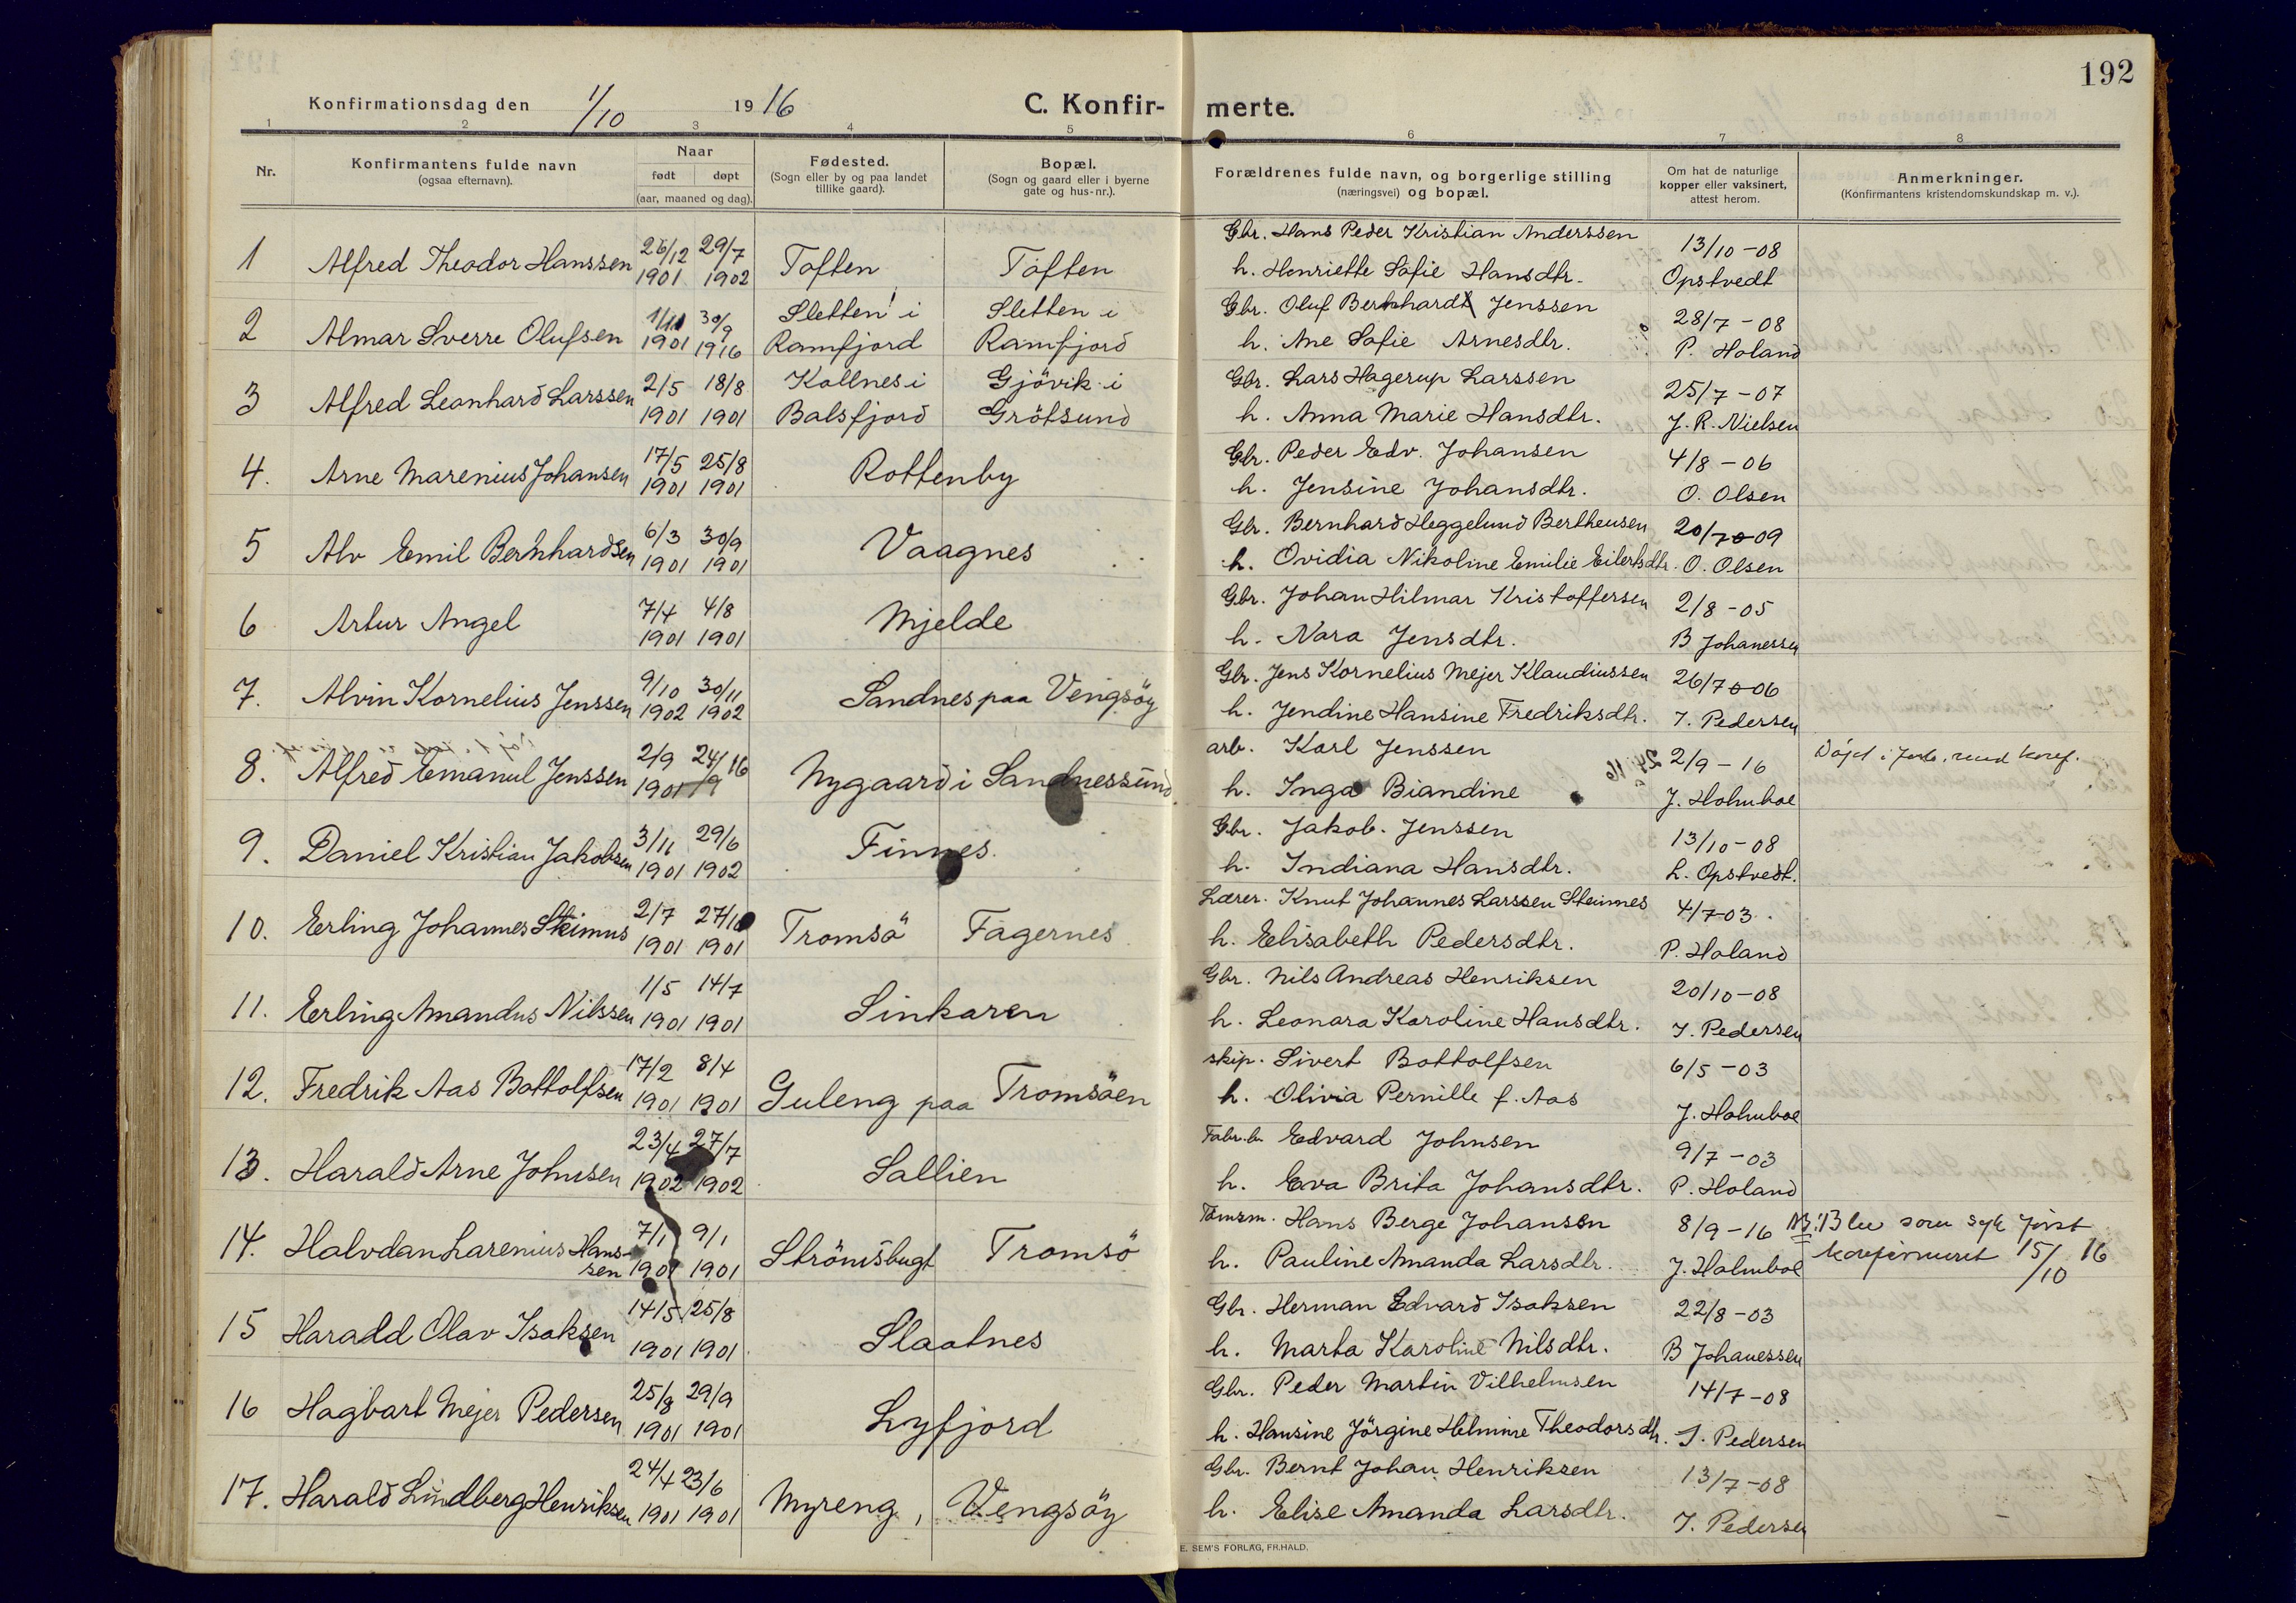 192
Konfirmationsdag den 1/10 1916 C. Konfir- merte.
1 2 3 4 5 6 7 8
Nr.
Konfirmantens fulde navn
(ogsaa efternavn).
Naar
født døpt
(aar, maaned og dag).
Fødested.
(Sogn eller by og paa landet
tillike gaard).
Bopæl.
(Sogn og gaard eller i byerne
gate og hus-nr.).
Forældrenes fulde navn, og borgerlige stilling
(næringsvei) og bopæl.
Om hat de naturlige
kopper eller vaksinert,
attest herom.
Anmerkninger.
(Konfirmantens kristendomskundskap m. v.).
26/12 29/7 Gbr. Hans Peder Kristian Anderssen 13/10-08
1 Alfred Theodor Hanssen 1901 1902 Toften Toften h. Henriette Sofie Hansdtr. Opstvedt
1/11 30/9 Sletten i Sletten i Gbr. Oluf Bernhardt Jenssen 28/7-08
2 Almar Sverre Olufsen 1901 1916 Ramfjord Ramfjord h. Ane Sofie Arnesdtr. P. Holand
2/5 18/8 Kollnes i Gjövik i Gbr. Lars Hagerup Larssen 25/7-07
3 Alfred Leonhard Larssen 1901 1901 Balsfjord Grötsund h. Anna Marie Hansdtr. J. R. Nielsen
17/5 25/8 Gbr. Peder Edv. Johansen 4/8-06
4. Arne Marenius Johansen 1901 1901 Rottenby h. Jensine Johansdtr. O. Olsen
6/3 30/9 Gbr. Bernhard Heggelund Bertheusen 20/7-09
5 Alv Emil Bernhardsen 1901 1901 Vaagnes h. Ovidia Nikoline Emilie Eilertsdtr. O. Olsen
7/4 4/8 Gbr. Johan Hilmar Kristoffersen 2/8-05
6 Artur Angel 1901 1901 Mjelde h. Nara Jensdtr. B Johanessen
9/10 30/11 Gbr. Jens Kornelius Mejer Klaudiussen 26/7-06
7. Alvin Kornelius Jenssen 1902 1902 Sandnes paa Vengsöy h. Jendine Hansine Fredriksdtr. J. Pedersen
2/9 24/9 16 arb. Karl Jenssen 2/9-16 Döpt i
8. Alfred Emanuel Jenssen 1901 Nygaard i Sandnessund h. Inga Biandine J. Holmboe
3/11 29/6 Gbr. Jakob. Jenssen 13/10-08
9. Daniel Kristian Jakobsen 1901 1902 Finnes. h. Indiana Hansdtr. L. Opstvedt.
2/7 27/10 Lærer. Knut Johannes Larssen Steinnes 4/7-03.
10. Erling Johannes Steinnes 1901 1901 Tromsö Fagernes h. Elisabeth Pedersdtr. P. Holand
1/5 14/7 Gbr. Nils Andreas Henriksen 20/10-08
11. Erling Amandus Nilssen 1901 1901 Sinkaren h. Leonara Karoline Hansdtr. J. Pedersen
17/2 8/4 skip. Sivert Bottolfsen 6/5-03
12. Fredrik Aas Bottolfsen 1901 1901 Guleng paa Tromsöen h. Olivia Pernille f. Aas J. Holmboe
23/4 27/7 Edvard Johnsen 9/7-03
13. Harald Arne Johnsen 1902 1902 Sallien h. Eva Brita Johansdtr. P. Holand
7/1 9/1 Tömrm. Hans Berge Johansen 8/9-16 NB! Blev som syk först
14. Halvdan Larenius Hans-
sen 1901 1901 Strömsbugt Tromsö h. Pauline Amanda Larsdtr. J. Holmboe konfirmeret 15/10 16
14/5 25/8 Gbr. Herman Edvard Isaksen 22/8-03
15 Harald Olav Isaksen 1901 1901 Slaatnes h. Marta Karoline Nilsdtr. B Johanessen
25/8 29/9 Gbr. Peder Martin Vilhelmsen 14/7-08
16 Hagbart Mejer Pedersen 1901 1901 Lyfjord h. Hansine Jörgine Helmine Theodorsdtr. J. Pedersen
24/4 23/6 Gbr. Bernt Johan Henriksen 13/7-08
17. Harald Lindberg Henriksen 1901 1901 Myreng, Vengsöy h. Elise Amanda Larsdtr. J. Pedersen
E. SEM'S FORLAG, FR.HALD.